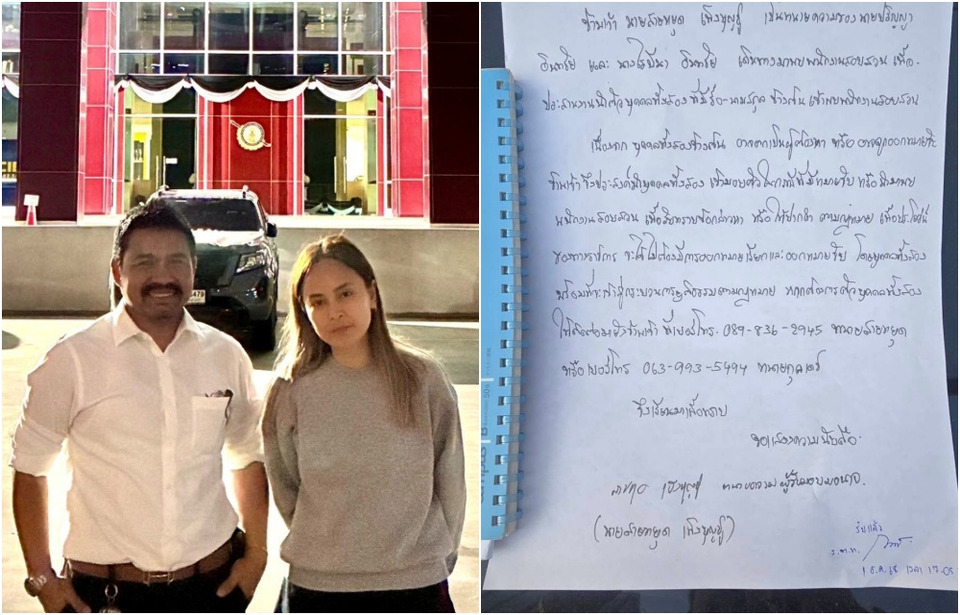 ข้าพเจ้า นายสายหยุด เพ็งบุญชู เป็นทนายความของ นายปริญญา
และ เดินทางมาพบพนักงานสอบสวน เพื่อ
บุคคลทั้งสอง ที่มีชื่อ-นามสกุล ข้างต้น เข้าพบพนักงานสอบสวน
เนื่องจาก บุคคลทั้งสองข้างต้น อาจตกเป็นผู้ต้องหา หรือ อาจถูกออกหมายจับ
ข้าพเจ้า จึงประสงค์นำบุคคลทั้งสอง เข้ามอบตัวในกรณีที่มีหมายจับ หรือเข้ามาพบ
พนักงานสอบสวน เพื่อรับทราบข้อกล่าวหา หรือ ให้ปากคำ ตามกฎหมาย เพื่อประโยชน์
ของทางราชการ จะได้ไม่ต้องมีการออกหมายเรียกและออกหมายจับ โดยบุคคลทั้งสอง
พร้อมที่จะเข้าสู่กระบวนการยุติธรรมตามกฎหมาย หากต้องการตัวบุคคลทั้งสอง
ให้ติดต่อมายังข้าพเจ้า ที่เบอร์โทร. 089-836-2945 ทนายสายหยุด
หรือ เบอร์โทร 063-993-5494
จึงเรียนมาเพื่อทราบ
ขอแสดงความนับถือ
ทนายความ ผู้รับมอบอำนาจ
(นายสายหยุด เพ็งบุญชู)
รับแล้ว
ร.ต.ท.
1 ธ.ค. 68 เวลา 17.05